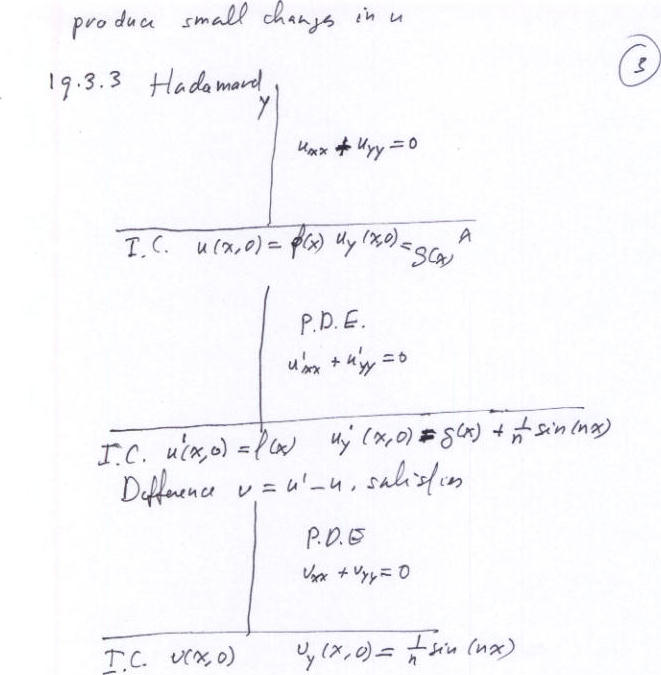 produce small changes in u
3
19.3.3 Hadamard
y
uxx + uyy = 0
I.C. u(x,0) = f(x) uy(x,0) = g(x)
P.D.E.
u'xx + u'yy = 0
I.C. u'(x,0) = f(x) uy'(x,0) = g(x) + 1/n sin(nx)
Difference v = u' - u, satisfies
P.D.E
vxx + vyy = 0
I.C. v(x,0) vy(x,0) = 1/n sin(nx)